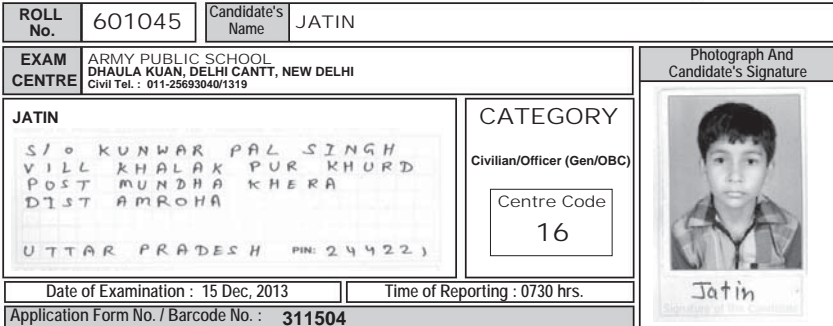 ROLL No. 601045 Candidate's Name JATIN
EXAM CENTRE
ARMY PUBLIC SCHOOL
DHAULA KUAN, DELHI CANTT, NEW DELHI
Civil Tel. : 011-25693040/1319
Photograph And
Candidate's Signature
JATIN
S/o KUNWAR PAL SINGH
VILL KHALAK PUR KHURD
POST MUNDHA KHERA
DIST AMROHA
UTTAR PRADESH PIN: 244221
CATEGORY
Civilian/Officer (Gen/OBC)
Centre Code
16
Jatin
Signature of the Candidate
Date of Examination : 15 Dec, 2013 Time of Reporting : 0730 hrs.
Application Form No. / Barcode No. : 311504